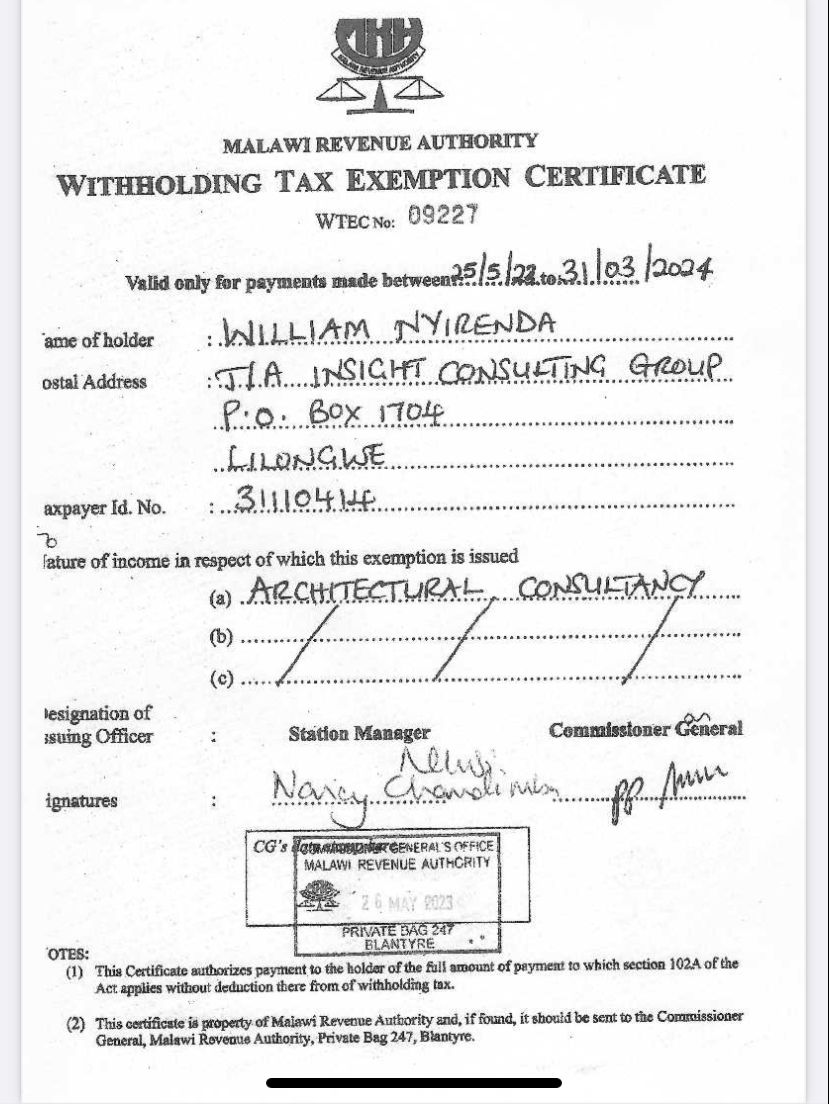 MRA
MALAWI REVENUE AUTHORITY
MALAWI REVENUE AUTHORITY
WITHHOLDING TAX EXEMPTION CERTIFICATE
WTEC No: 09227
Valid only for payments made between 25/5/23 to 31/03/2024
ame of holder : WILLIAM NYIRENDA
ostal Address : T/A INSIGHT CONSULTING GROUP
P.O. BOX 1704
LILONGWE
axpayer Id. No. : 31110414
ature of income in respect of which this exemption is issued
(a) ARCHITECTURAL CONSULTANCY
(b)
(c)
esignation of
ssuing Officer : Station Manager Commissioner General
ignatures : Nancy pp
CG's COMMISSIONER GENERAL'S OFFICE
MALAWI REVENUE AUTHORITY
26 MAY 2023
PRIVATE BAG 247
BLANTYRE
OTES:
(1) This Certificate authorizes payment to the holder of the full amount of payment to which section 102A of the
Act applies without deduction there from of withholding tax.
(2) This certificate is property of Malawi Revenue Authority and, if found, it should be sent to the Commissioner
General, Malawi Revenue Authority, Private Bag 247, Blantyre.